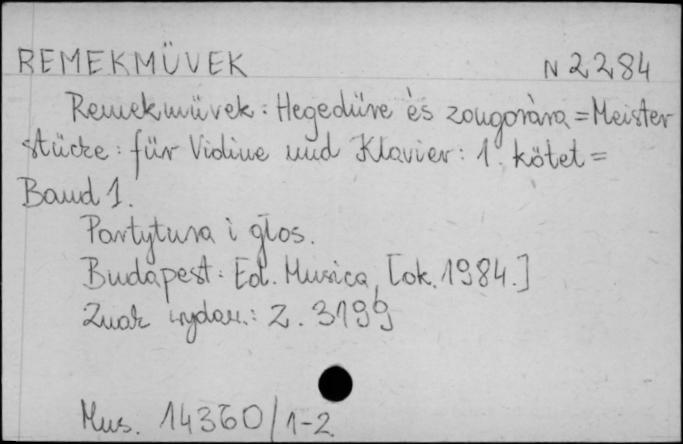 REMEKMÜVEK N 2284
Remekmüvek : Hegedüre és zongorára = Meister
stücke : für Violine und Klavier : 1. kötet =
Band 1.
Partytura i głos.
Budapest : Ed. Musica, [ok. 1984.]
Znak wydaw.: Z. 3199
Mus. 14360/1-2